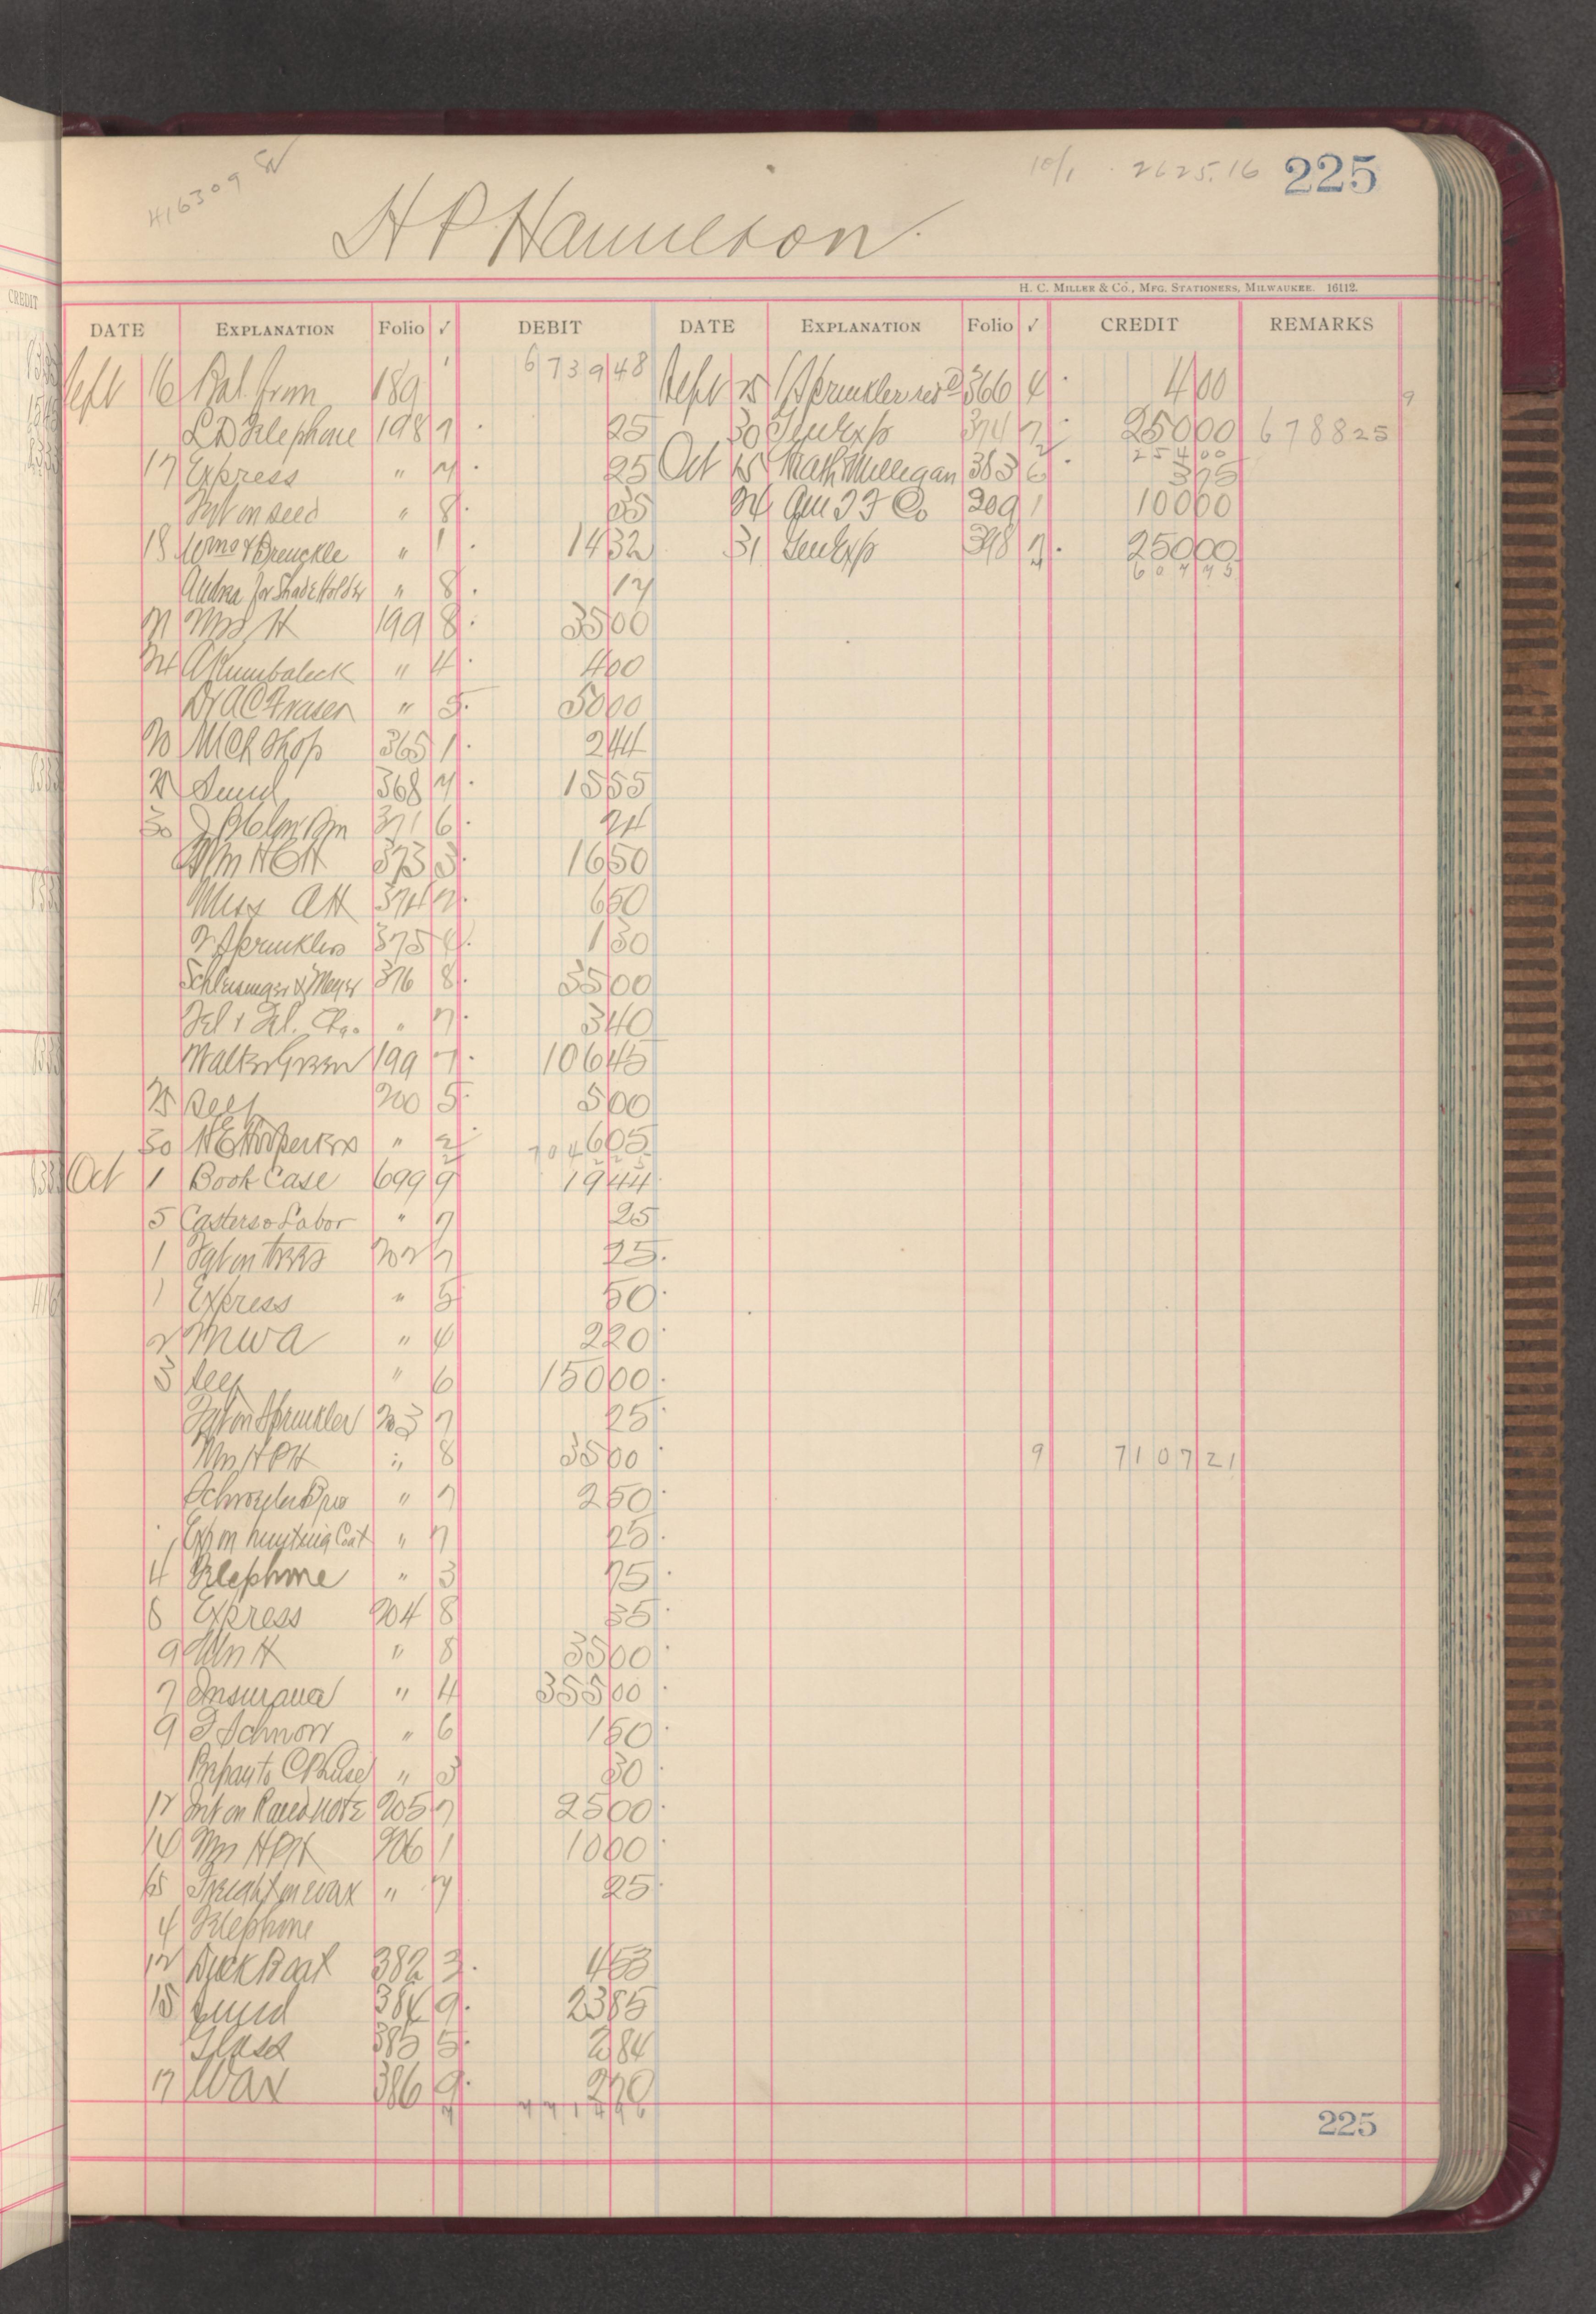 416309
10/1 2625.16 225
H P Hamilton
H. C. MILLER & CO., MFG. STATIONERS, MILWAUKEE. 16112.
DATE EXPLANATION Folio ✓ DEBIT DATE EXPLANATION Folio ✓ CREDIT REMARKS
Sept 16 Bal from 189 673948 Sept 25 1 Sprinkler 366 4 400
L D Telephone 198 7 25 30 Gen Exp 374 7 25000 678825
25400
17 Express " 7 25 Oct 15 Math Mulligan 383 6 375
Frt on seed " 8 35 24 209 1 10000
18 " 1 1432 31 Gen Exp 398 7 25000
60775
for Shade Holder " 8 17
21 Mrs H 199 8 3500
24 A Rumbaleck " 4 400
Dr A C Fraser " 5 5000
20 Mch Shop 365 1 244
25 Sund 368 7 1555
30 371 6 24
Mrs H P H 373 3 1650
Miss A H 374 7 650
2 Sprinklers 375 4 130
Schlesinger & Mayer 376 8 3500
Tel & Tel. Chg. " 7 340
Walter Green 199 7 10645
25 Self 200 5 500
30 " 2 605
Oct 1 Book Case 699 9 1944
5 Casters & Labor " 7 25
1 Frt on trees 202 7 25
1 Express " 5 50
2 M W A " 4 220
3 Self " 6 15000
Frt on Sprinkler 203 7 25
Mrs H P H " 8 3500 9 710721
Schroeder Bros " 7 250
Exp on hunting Coat " 7 25
4 Telephone " 3 75
8 Express 204 8 35
9 Mrs H " 8 3500
7 Insurance " 4 35500
9 F Schnorr " 6 150
" 3 30
12 Int on Raced Note 205 7 2500
14 Mrs H P H 206 1 1000
15 Freight on wax " 7 25
4 Telephone
12 Duck Boat 382 3 453
15 Sund 384 9 2385
Glass 385 5 284
17 Wax 386 9 270
771496
225